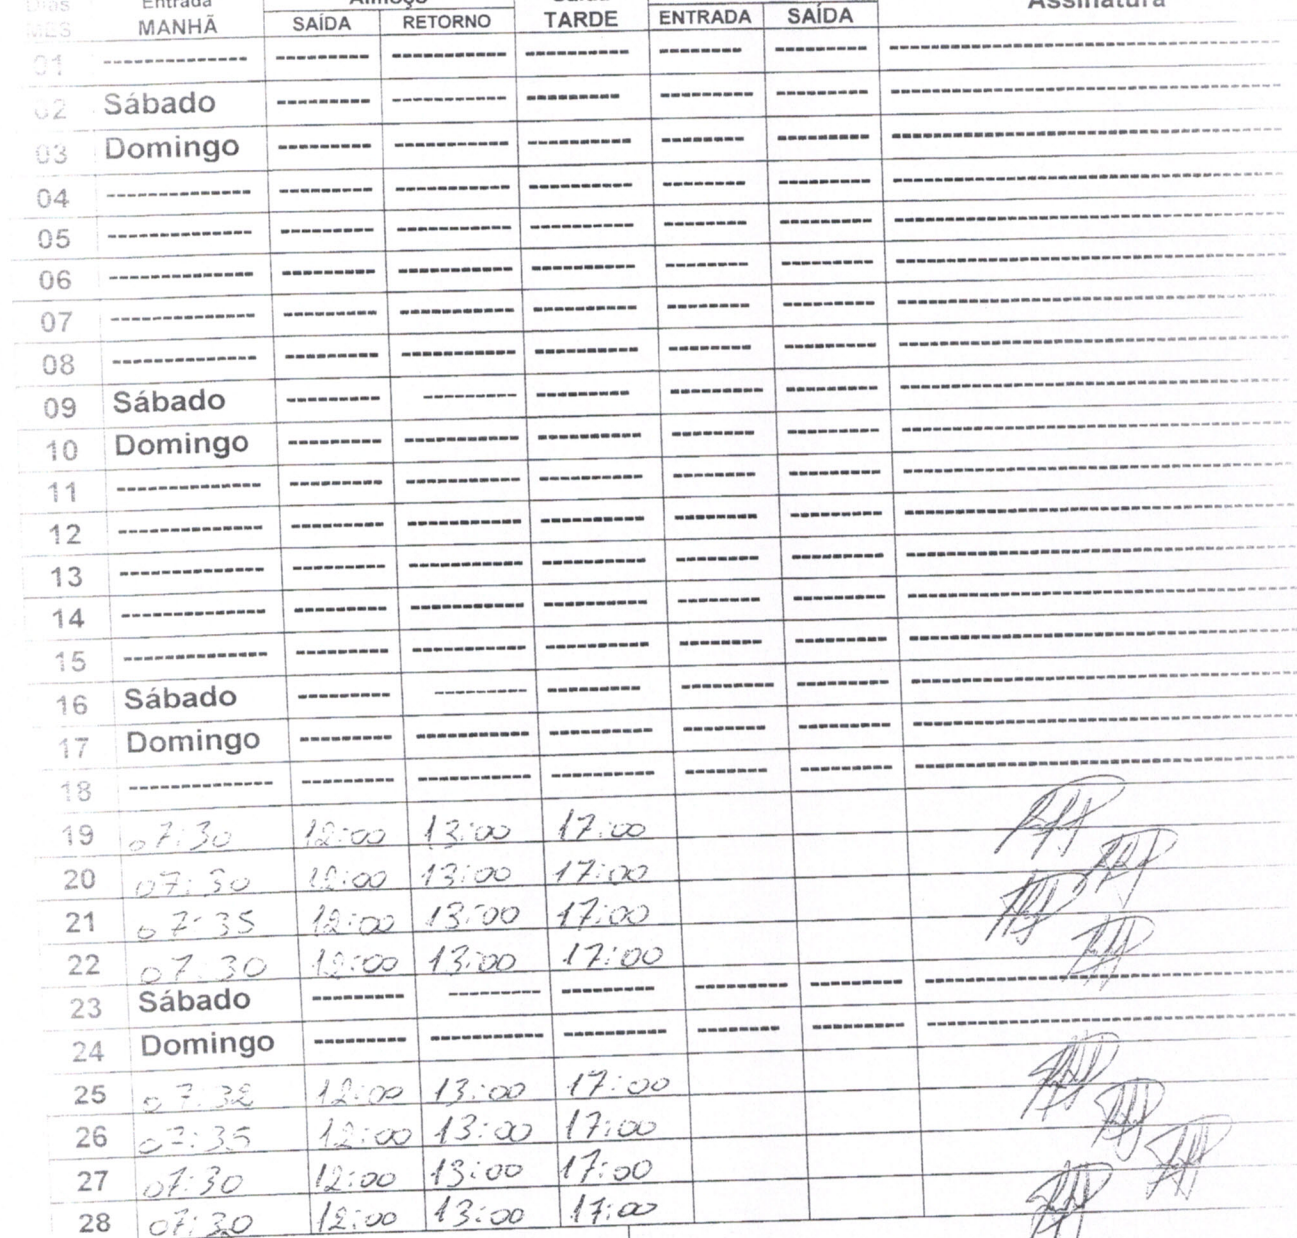 Dias Entrada Almoço Saída Assinatura
MES MANHÃ SAÍDA RETORNO TARDE ENTRADA SAÍDA
01 ------------- --------- ----------- ---------- -------- --------- ----------------------------------------
02 Sábado --------- ----------- --------- --------- --------- ----------------------------------------
03 Domingo --------- ----------- ---------- -------- --------- ----------------------------------------
04 ------------- --------- ----------- ---------- -------- --------- ----------------------------------------
05 ------------- --------- ----------- ---------- -------- --------- ----------------------------------------
06 ------------- --------- ----------- ---------- -------- --------- ----------------------------------------
07 ------------- --------- ----------- ---------- -------- --------- ----------------------------------------
08 ------------- --------- ----------- ---------- -------- --------- ----------------------------------------
09 Sábado --------- --------- --------- --------- --------- ----------------------------------------
10 Domingo --------- ----------- ---------- -------- --------- ----------------------------------------
11 ------------- --------- ----------- ---------- -------- --------- ----------------------------------------
12 ------------- --------- ----------- ---------- -------- --------- ----------------------------------------
13 ------------- --------- ----------- ---------- -------- --------- ----------------------------------------
14 ------------- --------- ----------- ---------- -------- --------- ----------------------------------------
15 ------------- --------- ----------- ---------- -------- --------- ----------------------------------------
16 Sábado --------- --------- --------- --------- --------- ----------------------------------------
17 Domingo --------- ----------- ---------- -------- --------- ----------------------------------------
18 ------------- --------- ----------- ---------- -------- --------- ----------------------------------------
19 07:30 12:00 13:00 17:00
20 07:30 12:00 13:00 17:00
21 07:35 12:00 13:00 17:00
22 07:30 12:00 13:00 17:00
23 Sábado --------- --------- --------- --------- --------- ----------------------------------------
24 Domingo --------- ----------- ---------- -------- --------- ----------------------------------------
25 07:32 12:00 13:00 17:00
26 07:35 12:00 13:00 17:00
27 07:30 12:00 13:00 17:00
28 07:30 12:00 13:00 17:00